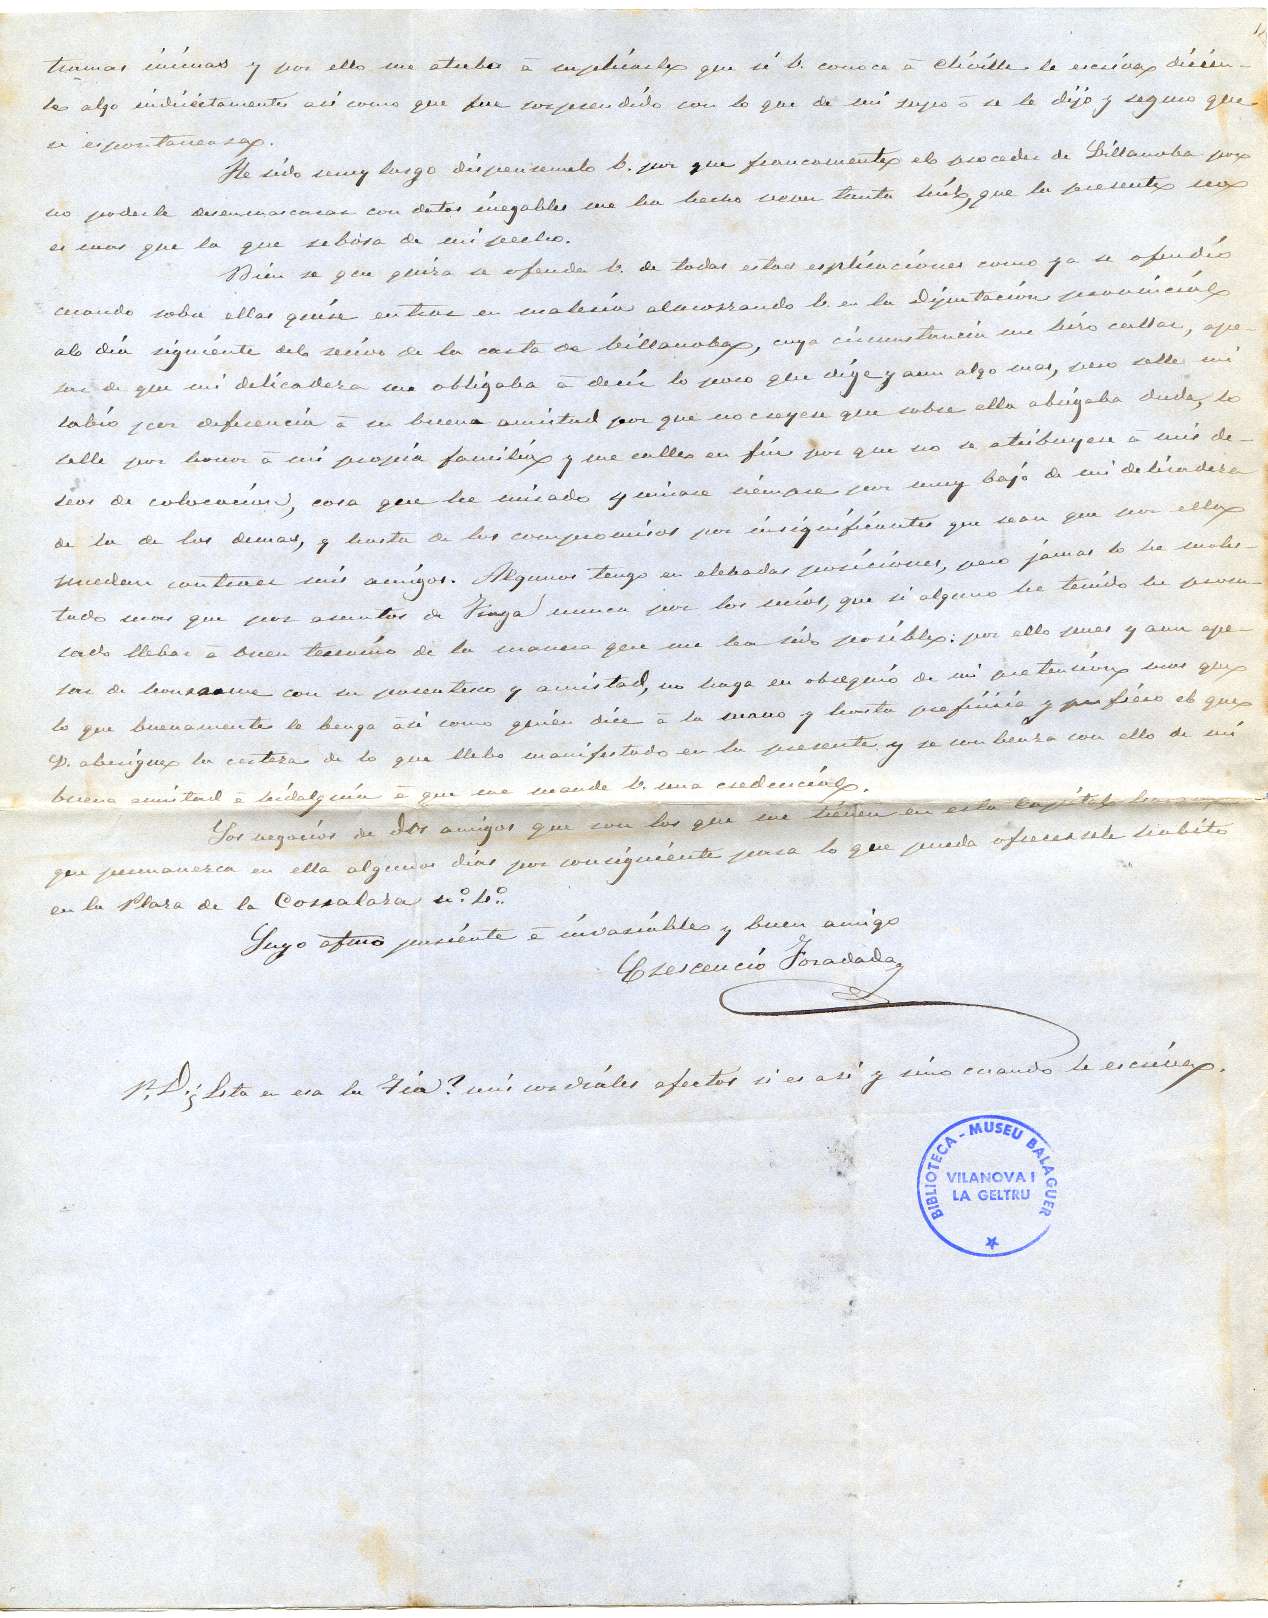 tramas inicuas y por ello me atrebo á suplicarle que si V. conoce á Chiville le escriva dicien-
le algo indirectamente asi como que fue sorprendido con lo que de mi supo ó se le dijo y seguro que
se espontaneara.
He sido muy largo dispensemelo V. por que francamente el proceder de Billanoba por
no poderle desenmascarar con datos inegables me ha hecho tanta que la presente no
es mas que la que rebosa de mi pecho.
Bien se que quiza se ofenda V. de todas estas esplicaciones como ya se ofendió
cuando sobre ellas quise entrar en materia almorzando V. en la Diputación provincial
al dia siguiente del recivo de la carta de Billanoba, cuya circunstancia me hizo callar, ape-
sar de que mi delicadeza me obligaba á decir lo poco que dige y aun algo mas, pero selle mi
labio por deferencia á su buena amistad por que no creyese que sobre ella abrigaba duda, lo
selle por honor á mi propia familia y me calle en fin por que no se atribuyese á mis de-
seos de colocacion, cosa que he mirado y mirare siempre por muy bajo de mi delicadeza
de la de los demas, y hasta de los compromisos por insignificantes que sean que por ello
puedan contraer mis amigos. Algunos tengo en elebadas posiciones, pero jamas lo he moles-
tado mas que por asuntos de Fraga nunca por los mios, que si alguno he tenido he procu-
rado llebar á buen termino de la manera que me ha sido posible: por ello pues y aun ape-
sar de honrarme con su parentesco y amistad, no haga en obsequio de mi pretención mas que
lo que buenamente le benga asi como quien dice á la mano y hasta prefiriria y prefiero el que
V. aberigue la certeza de lo que llebo manifestado en la presente y se conbenza con ello de mi
buena amistad é hidalguia á que me mande V. una credencial.
Los negocios de dos amigos que son los que me tienen en esta Capital haran
que permanezca en ella algunos dias por consiguiente para lo que pueda ofrecersele habito
en la Plaza de la Cossalara nº 4º.
Suyo afmo pariente é invariable y buen amigo
Crescencio Foradada
P. D. ¿Esta en esa la Tia? mis cordiales afectos si es asi y sino cuando le escriva.
BIBLIOTECA - MUSEU BALAGUER
VILANOVA I
LA GELTRU